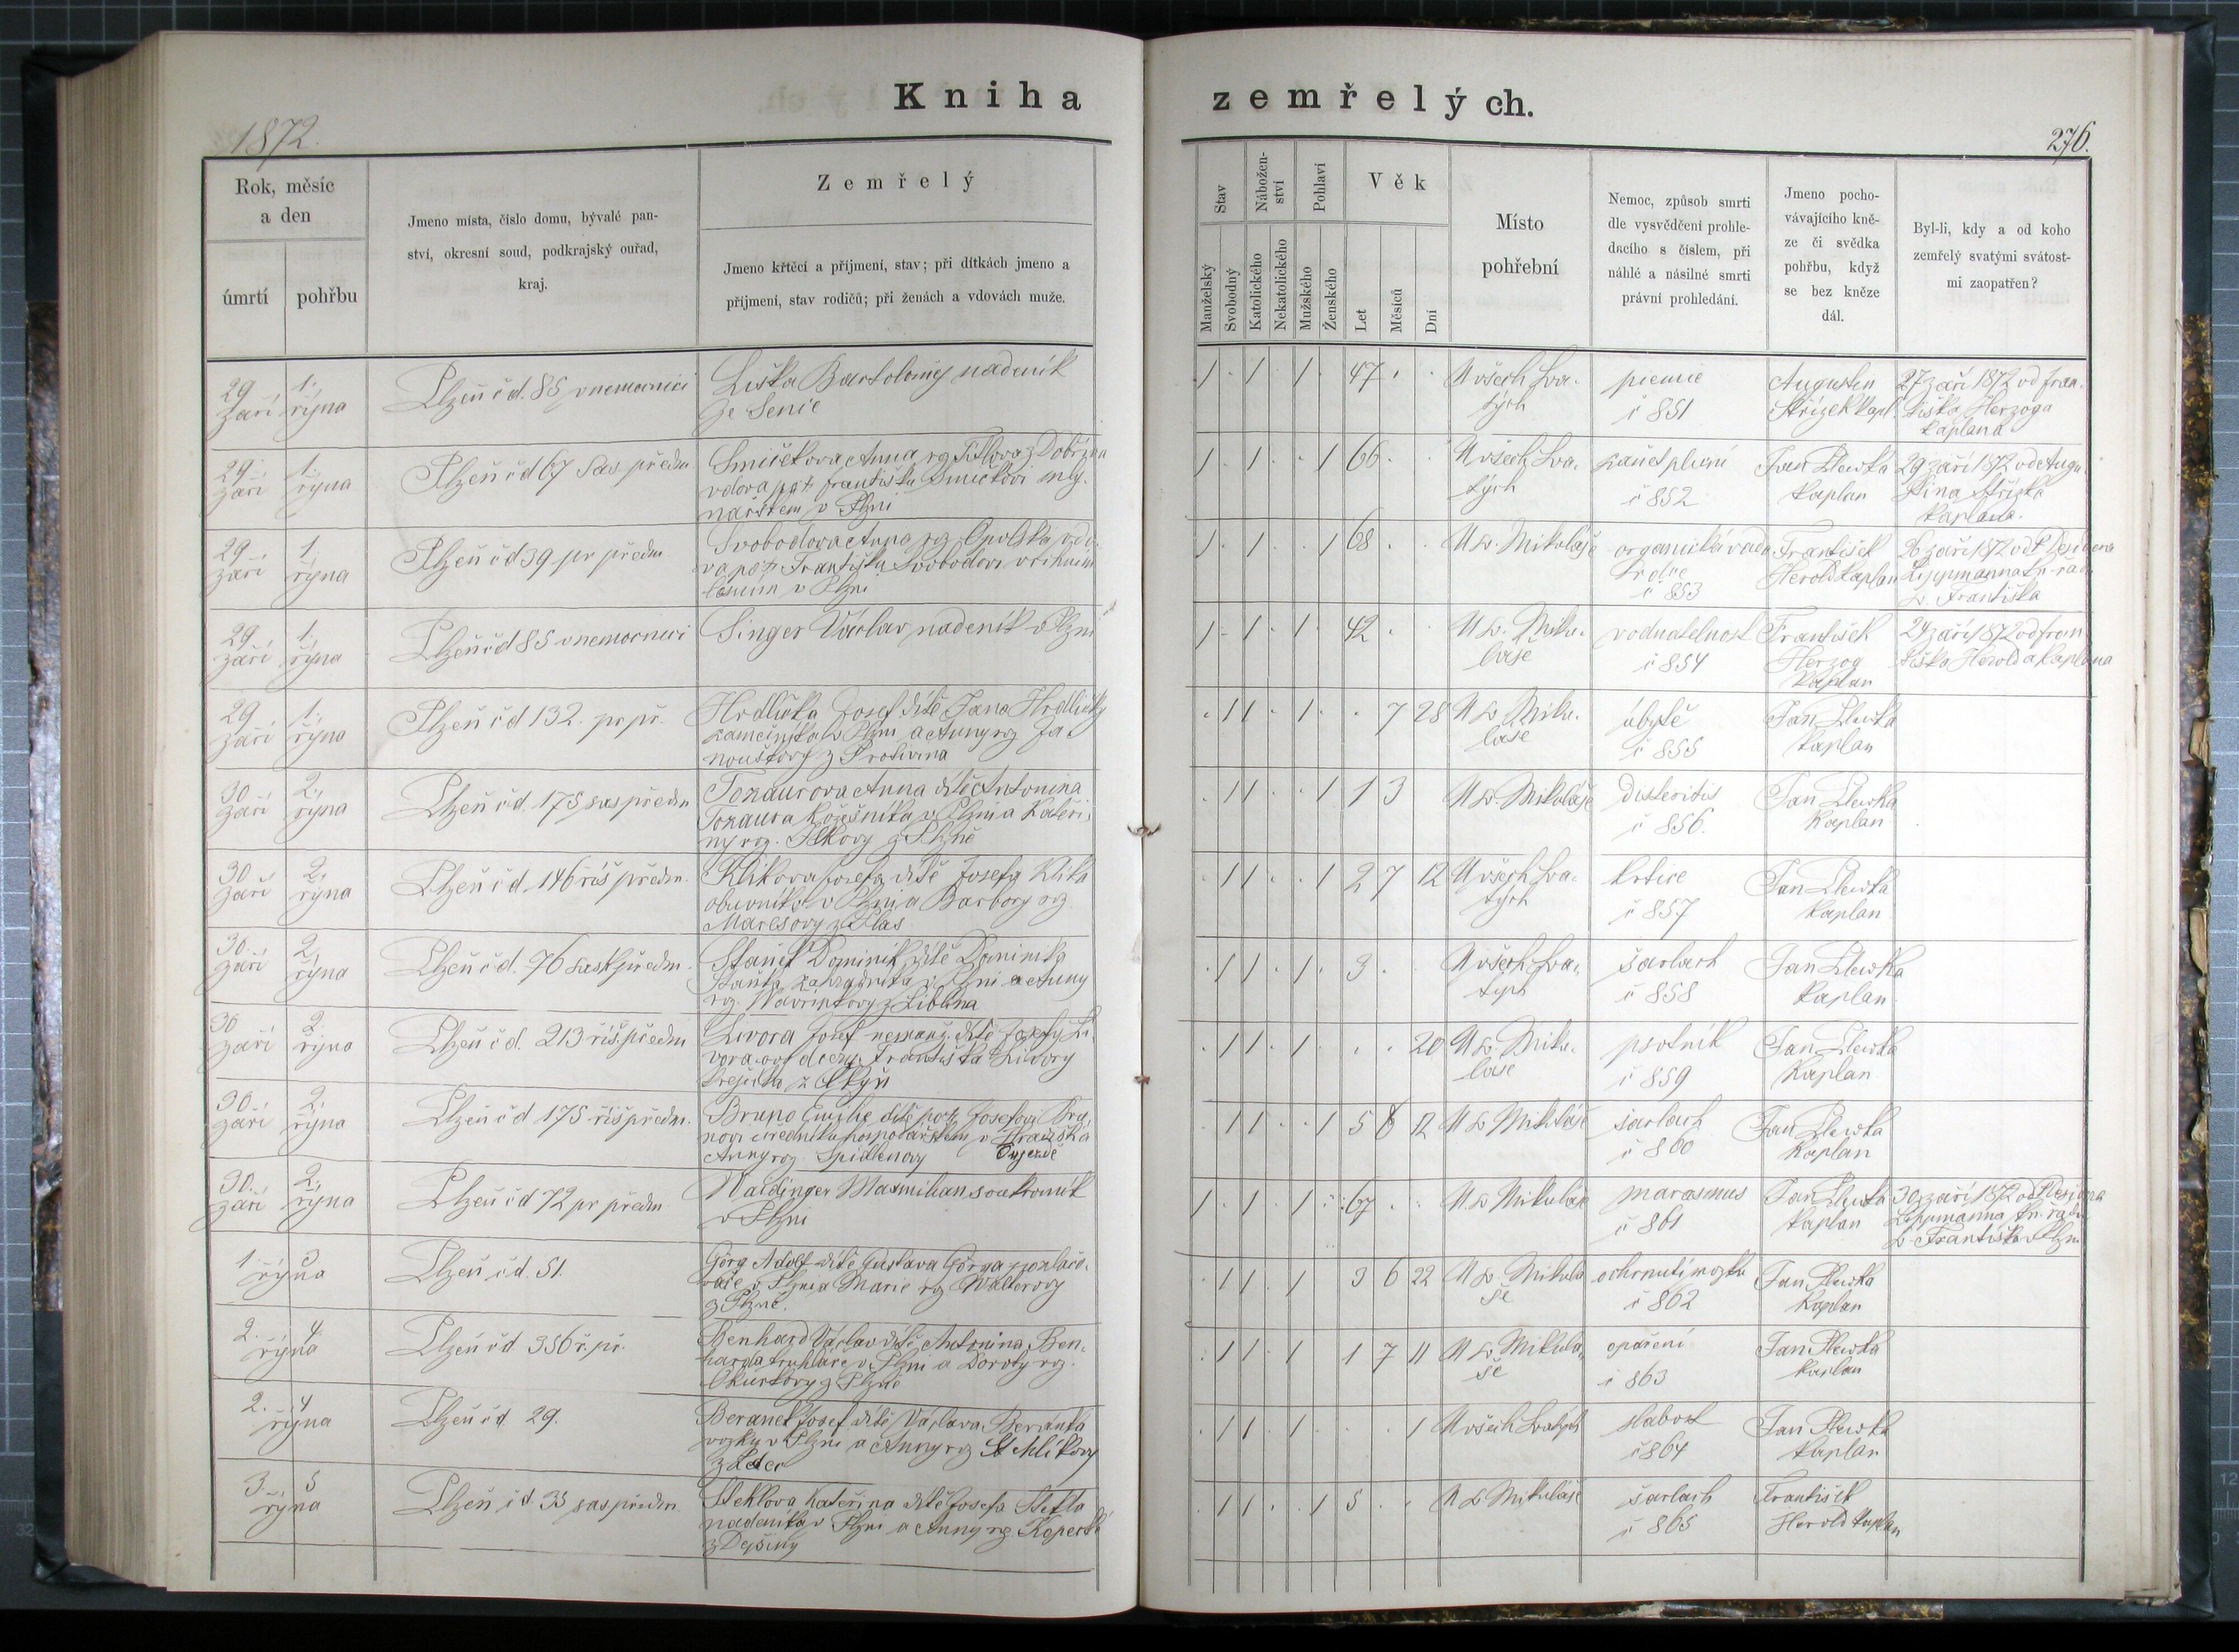 Kniha
zemřelých.
1872.
276.
Rok, měsíc
a den
úmrtí
pohřbu
Jmeno místa, číslo domu, bývalé pan-
ství, okresní soud, podkrajský ouřad,
kraj.
Zemřelý
Jmeno křtěcí a přijmení, stav; při dítkách jmeno a
příjmení, stav rodičů; při ženách a vdovách muže.
Stav
Manželský
Svobodný
Nábožen-
ství
Katolického
Nekatolického
Pohlaví
Mužského
Ženského
Věk
Let
Měsíců
Dní
Místo
pohřební
Nemoc, způsob smrti
dle vysvědčení prohle-
dacího s číslem, při
náhlé a násilné smrti
právní prohledání.
Jmeno pocho-
vávajícího kně-
ze či svědka
pohřbu, když
se bez kněze
dál.
Byl-li, kdy a od koho
zemřelý svatými svátost-
mi zaopatřen?
29 září 1. října Plzeň č d. 85 v nemocnici Liška Bartoloměj nadeník
ze Senice
1 1 1 47 U všech Sva-
tých
piemie
č 851
Augustin
Střízek kapl.
27 září 1872 od Fran-
tiška Herzoga
kaplana
29 září 1. října Plzeň č d 67 Sas. předm. Smíčkova Anna roz Fišlova z Dobřína
vdova po † Františku Smíčkovi mly-
nářském v Plzni
1 1 1 66 U všech Sva-
tých
zánět plicní
č 852
Jan Slewka
kaplan
29 září 1872 od Augu-
stina Střízka
kaplana.
29 září 1. října Plzeň č d 39 pr předm Svobodova Anna roz Opolska vdo-
va po † Františku Svobodovi
v Plzni
1 1 1 68 U sv. Mikuláše organická vada
srdce
č 853
František
Herold kaplan
26 září 1872 od P Desidera
Lippmanna kn. řadu
sv. Františka
29 září 1. října Plzeň č d 85 v nemocnici Singer Václav nadeník v Plzni
1 1 1 42 U sv. Miku-
láše
vodnatelnost
č 854
František
Herzog
kaplan
24 září 1872 od Fran-
tiška Herolda kaplana
29 září 1. října Plzeň č d 132. pr př. Hrdlička Josef dítě Jana Hrdličky
kameníka v Plzni a Anny roz Ja-
nouškovy z Protivína
11 1 7 28 U sv Miku-
láše
úbytě
č 855
Jan Slewka
kaplan
30 září 2. října Plzeň č d. 175 sas předm Tonaurova Anna dítě Antonína
Tonaura kožešníka v Plzni a Kateři-
ny roz. z Plzně
11 1 1 3 U sv. Mikuláše disteritis
č 856.
Jan Slewka
kaplan
30 září 2. října Plzeň č d. 146 říš předm. Klikova Josefa dítě Josefa Klika
obuvníka v Plzni a Barbory roz
Marešovy z Plas
11 1 2 7 12 U všech Sva-
tých
krtice
č 857
Jan Slewka
kaplan
30. září 2. října Plzeň č d. 76 sask předm. Staněk Dominik dítě Dominika
Staňka zahradníka v Plzni a Anny
roz. z Liblína
11 1 3 U všech Sva-
tých
šarlach
č 858
Jan Slewka
kaplan
30 září 2. října Plzeň č d. 213 říš. předm Livora Josef nemanž. dítě Josefy Li-
vora dcery Františka Livory
krejčího z
11 1 20 U sv Miku-
láše
psotník
č 859
Jan Slewka
kaplan
30. září 2. října Plzeň č d 175 říš předm. Bruno Emilie dítě po † Josefovi Bru-
novi úředníku hospodářském v Hradišká
Anny roz. Spidlenovy
11 1 5 8 12 U sv Mikuláše šarlach
č 860
Jan Slewka
kaplan
30. září 2. října Plzeň č d 72 pr předm. Waldinger Maxmilian soukromník
v Plzni
1 1 1 67 U. sv Mikuláše marasmus
č 861
Jan Slewka
kaplan
30 září 1872 od P Desidera
Lippmanna kn. řadu
sv. Františka v Plzni
1 3 října Plzeň č d. 51. Görg Adolf dítě Gustava Görga
v Plzni a Marie roz Wallerovy
z Plzně.
11 1 3 6 22 U sv. Mikulá
še
ochrnutí mozku
č 862
Jan Slewka
kaplan
2. 4 října Plzeň č d 356 ř. př. Benhard Václav dítě Antonína Ben-
harda truhláře v Plzni a Doroty roz.
z Plzně
11 1 1 7 11 U sv Mikulá-
še
opaření
č 863
Jan Slewka
kaplan
2. 4 října Plzeň č d 29. Beranek Josef dítě Václava Beranka
v Plzni a Anny roz
11 1 1 U všech Svatých slabost
č 864
Jan Slewka
kaplan
3. 5 října Plzeň č d. 35 sas předm. Steklova Kateřina dítě Josefa Stekla
nadeníka v Plzni a Anny roz. Kopecké
z Dejšiny
11 1 5 U sv Mikuláše šarlach
č 865
František
Herold kaplan